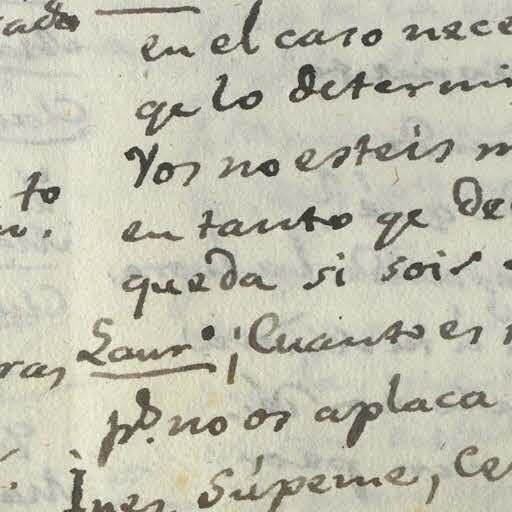 en el caso nece
qe lo determi
Vos no esteis m
to
en tanto qe de
queda si sois
Laur.o ¡Cuanto es
ras
pº. no os aplaca
Ines Súpeme, Ce